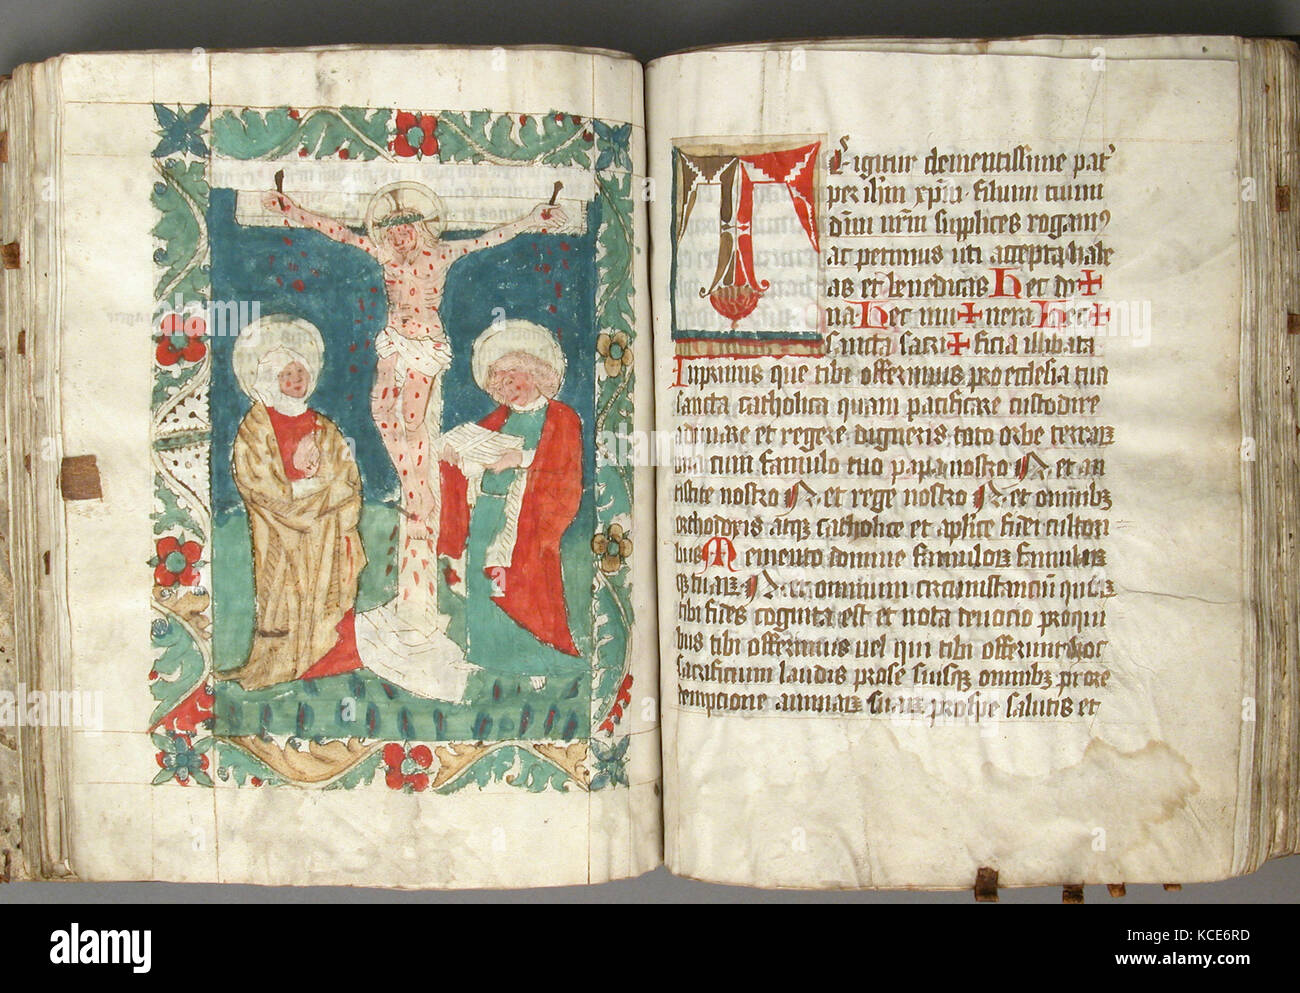 T E igitur clementissime pat'
per ihm xpm filium tuum
dnm nrm supplices rogam9
ac petimus uti accepta habe
as et benedicas Hec do✠
na Hec mu✠nera Hec✠
sancta sacri✠ficia illibata
Inprimis que tibi offerimus pro ecclesia tua
sancta catholica quam pacificare custodire
adunare et regere digneris toto orbe terraꝝ
una cum famulo tuo papa nostro N et an
tistite nostro N et rege nostro N et omnibꝫ
orthodoxis atqꝫ catholice et aplice fidei cultori
bus Memento domine famuloꝝ famulaꝝ
qꝫ tuaꝝ N et omnium circumstanciū quoꝝ
tibi fides cognita est et nota devocio pro qui
bus tibi offerimus vel qui tibi offerunt hoc
sacrificium laudis pro se suisqꝫ omnibꝫ pro re
dempcione animaꝝ suaꝝ pro spe salutis et
alamy
Image ID: KCE6RD
www.alamy.com